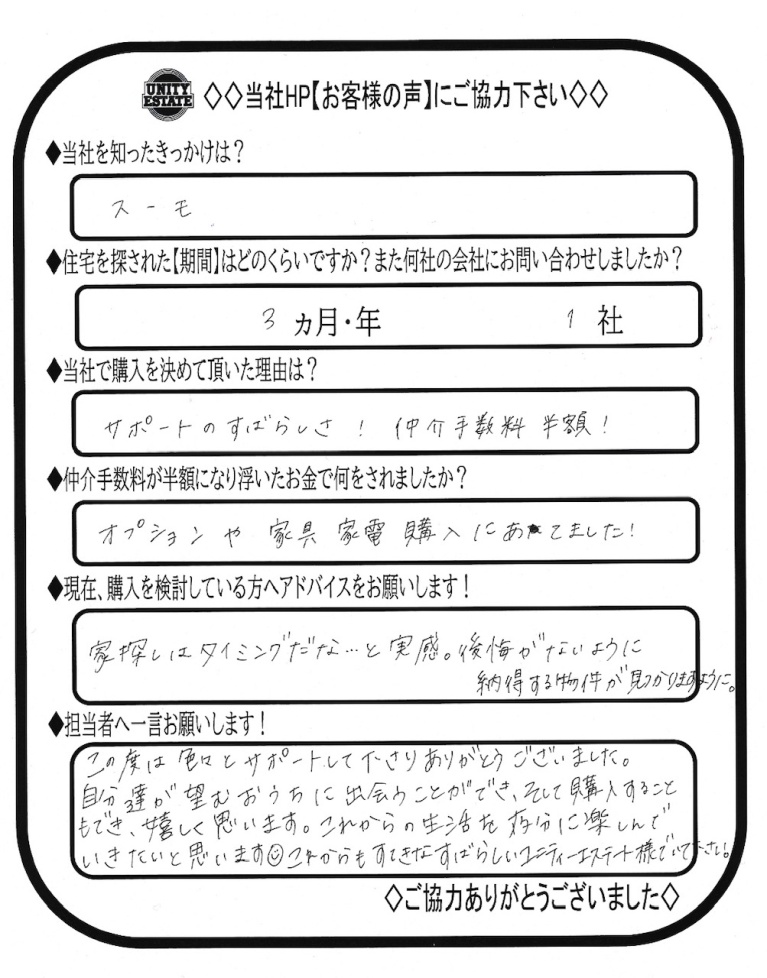 UNITY
ESTATE
◇◇当社HP【お客様の声】にご協力下さい◇◇
◆当社を知ったきっかけは？
スーモ
◆住宅を探された【期間】はどのくらいですか？また何社の会社にお問い合わせしましたか？
3 ヵ月・年 1 社
◆当社で購入を決めて頂いた理由は？
サポートのすばらしさ！ 仲介手数料 半額！
◆仲介手数料が半額になり浮いたお金で何をされましたか？
オプションや 家具 家電 購入にあてました！
◆現在、購入を検討している方へアドバイスをお願いします！
家探しはタイミングだな…と実感。後悔がないように
納得する物件が見つかりますように。
◆担当者へ一言お願いします！
この度は色々とサポートして下さりありがとうございました。
自分達が望むおうちに出会うことができ、そして購入すること
もでき、嬉しく思います。これからの生活を存分に楽しんで
いきたいと思います☺これからもすてきなすばらしいユニティーエステート様でいて下さい。
◇ご協力ありがとうございました◇